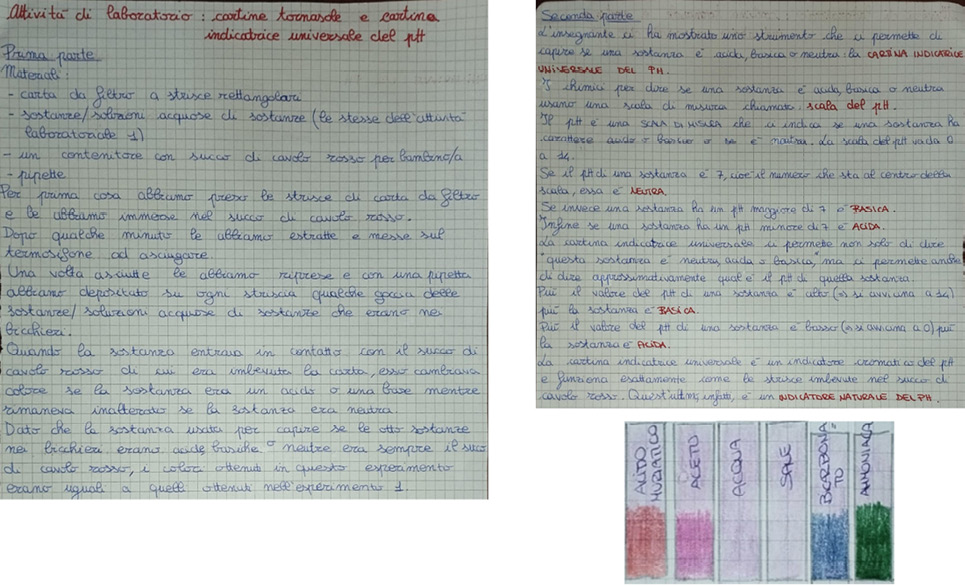 Attività di laboratorio: cartine tornasole e cartina
indicatrice universale del pH
Prima parte
Materiali:
- carta da filtro a strisce rettangolari
- sostanze/soluzioni acquose di sostanze (le stesse dell'attività
laboratoriale 1)
- un contenitore con succo di cavolo rosso per bambino/a
- pipette
Per prima cosa abbiamo preso le strisce di carta da filtro
e le abbiamo immerse nel succo di cavolo rosso.
Dopo qualche minuto le abbiamo estratte e messe sul
termosifone ad asciugare.
Una volta asciutte le abbiamo riprese e con una pipetta
abbiamo depositato su ogni striscia qualche goccia delle
sostanze/soluzioni acquose di sostanze che erano nei
bicchieri.
Quando la sostanza entrava in contatto con il succo di
cavolo rosso di cui era imbevuta la carta, esso cambiava
colore se la sostanza era un acido o una base mentre
rimaneva inalterato se la sostanza era neutra.
Dato che la sostanza usata per capire se le otto sostanze
nei bicchieri erano acide, basiche o neutre era sempre il succo
di cavolo rosso, i colori ottenuti in questo esperimento
erano uguali a quelli ottenuti nell'esperimento 1.
Seconda parte
L'insegnante ci ha mostrato uno strumento che ci permette di
capire se una sostanza è acida, basica o neutra: la CARTINA INDICATRICE
UNIVERSALE DEL PH.
I chimici per dire se una sostanza è acida, basica o neutra
usano una scala di misura chiamata scala del pH.
Il pH è una SCALA DI MISURA che ci indica se una sostanza ha
carattere acido o basico o se è neutra. La scala del pH va da 0
a 14.
Se il pH di una sostanza è 7, cioè il numero che sta al centro della
scala, essa è NEUTRA.
Se invece una sostanza ha un pH maggiore di 7 è BASICA.
Infine se una sostanza ha un pH minore di 7 è ACIDA.
La cartina indicatrice universale ci permette non solo di dire
"questa sostanza è neutra, acida o basica", ma ci permette anche
di dire approssimativamente qual è il pH di quella sostanza.
Più il valore del pH di una sostanza è alto (si avvicina a 14)
più la sostanza è BASICA.
Più il valore del pH di una sostanza è basso (si avvicina a 0) più
la sostanza è ACIDA.
La cartina indicatrice universale è un indicatore cromatico del pH
e funziona esattamente come le strisce imbevute nel succo di
cavolo rosso. Quest'ultimo, infatti, è un INDICATORE NATURALE DEL PH.
ACIDO
MURIATICO
ACETO
ACQUA
SALE
BICARBONA
TO
AMMONIACA